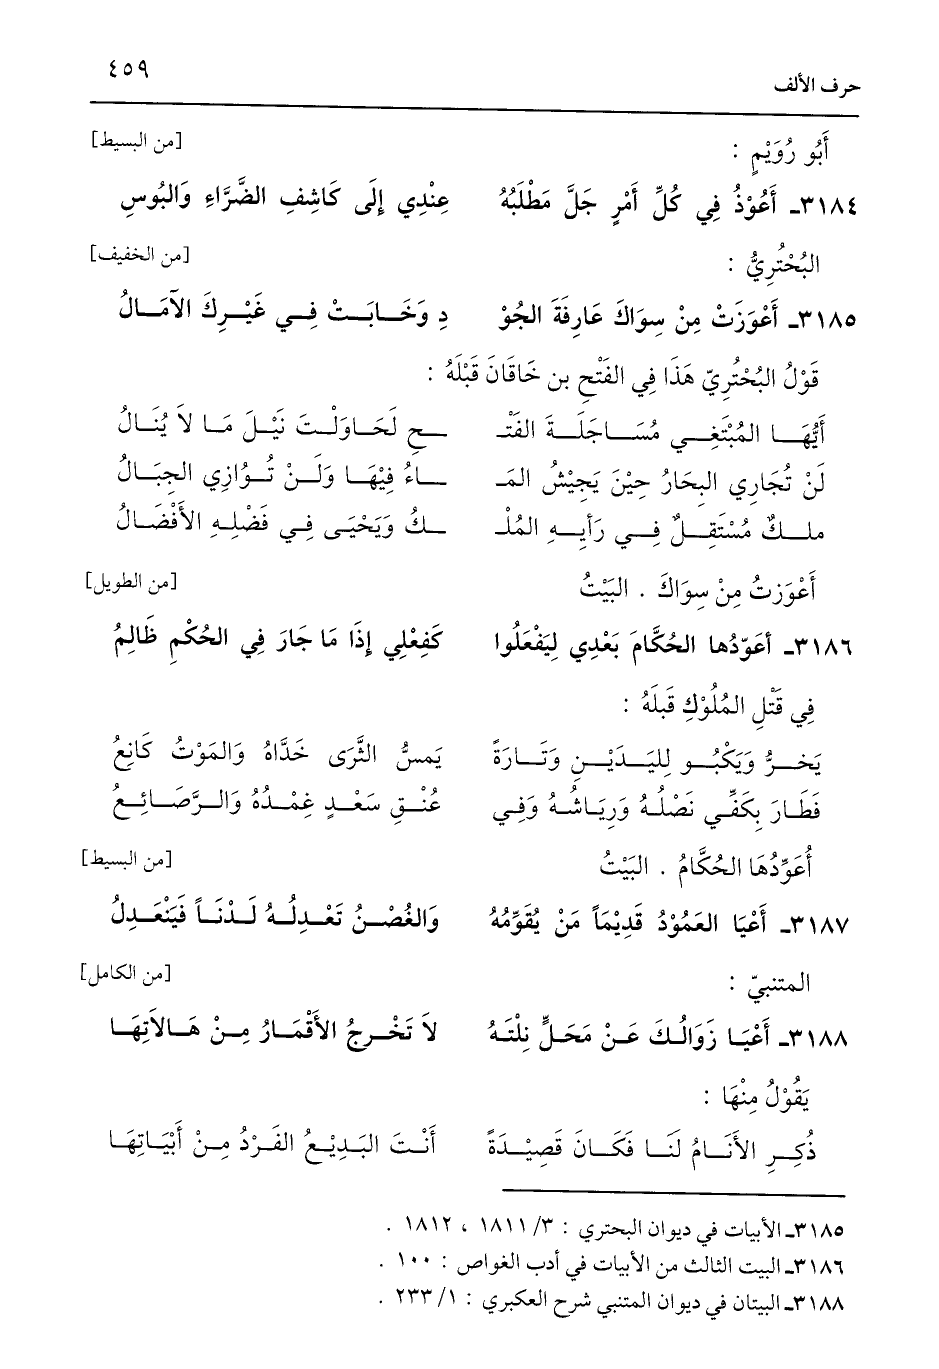 حرف الألف ٤٥٩
أَبُو رُوَيْمٍ : [من البسيط]
٣١٨٤ـ أَعُوْذُ فِي كُلِّ أَمْرٍ جَلَّ مَطْلَبُهُ عِنْدِي إِلَى كَاشِفِ الضَّرَّاءِ وَالبُوسِ
البُحْتُرِيُّ : [من الخفيف]
٣١٨٥ـ أَعْوَزَتْ مِنْ سِوَاكَ عَارِفَةَ الجُوْ دِ وَخَابَتْ فِي غَيْرِكَ الآمَالُ
قَوْلُ البُحْتُرِيّ هَذَا فِي الفَتْحِ بن خَاقَانَ قَبْلَهُ :
أَيُّهَا المُبْتَغِي مُسَاجَلَةَ الفَتْـ ـحِ لَحَاوَلْتَ نَيْلَ مَا لَا يُنَالُ
لَنْ تُجَارِي البحَارُ حِيْنَ يَجِيْشُ المَـ ـاءُ فِيْهَا وَلَنْ تُوَازِي الجِبَالُ
ملكٌ مُسْتَقِلٌ فِي رَأْيِهِ المُلْـ ـكُ وَيَحْيَى فِي فَضْلِهِ الأَفْضَالُ
أَعْوَزتُ مِنْ سِوَاكَ . البَيْتُ [من الطويل]
٣١٨٦ـ أعَوّدُها الحُكَّامَ بَعْدِي لِيَفْعَلُوا كَفِعْلِي إِذَا مَا جَارَ فِي الحُكْمِ ظَالِمُ
فِي قَتْلِ المُلُوْكِ قَبلَهُ :
يَخرُّ وَيَكْبُو لِليَدَيْنِ وَتَارَةً يَمسُّ الثَّرَى خَدَّاهُ وَالمَوْتُ كَانِعُ
فَطَارَ بِكَفِّي نَصْلُهُ وَرِيَاشُهُ وَفِي عُنْقِ سَعْدٍ غِمْدُهُ وَالرَّصَائِعُ
أُعَوِّدُهَا الحُكَّامُ . البَيْتُ [من البسيط]
٣١٨٧ـ أَعْيَا العَمُوْدُ قَدِيْمَاً مَنْ يُقَوِّمُهُ وَالغُصْنُ تَعْدِلُهُ لَدْنَاً فَيَنْعَدِلُ
المتنبيّ : [من الكامل]
٣١٨٨ـ أَعْيَا زَوَالُكَ عَنْ مَحَلٍّ نِلْتَهُ لاَ تَخْرجُ الأَقْمَارُ مِنْ هَالاَتِهَا
يَقُوْلُ مِنْهَا :
ذُكِرِ الأَنَامُ لَنَا فَكَانَ قَصِيْدَةً أَنْتَ البَدِيْعُ الفَرْدُ مِنْ أَبْيَاتِهَا
٣١٨٥ـ الأبيات في ديوان البحتري : ٣/ ١٨١١ ، ١٨١٢ .
٣١٨٦ـ البيت الثالث من الأبيات في أدب الغواص : ١٠٠ .
٣١٨٨ـ البيتان في ديوان المتنبي شرح العكبري : ١/ ٢٣٣ .